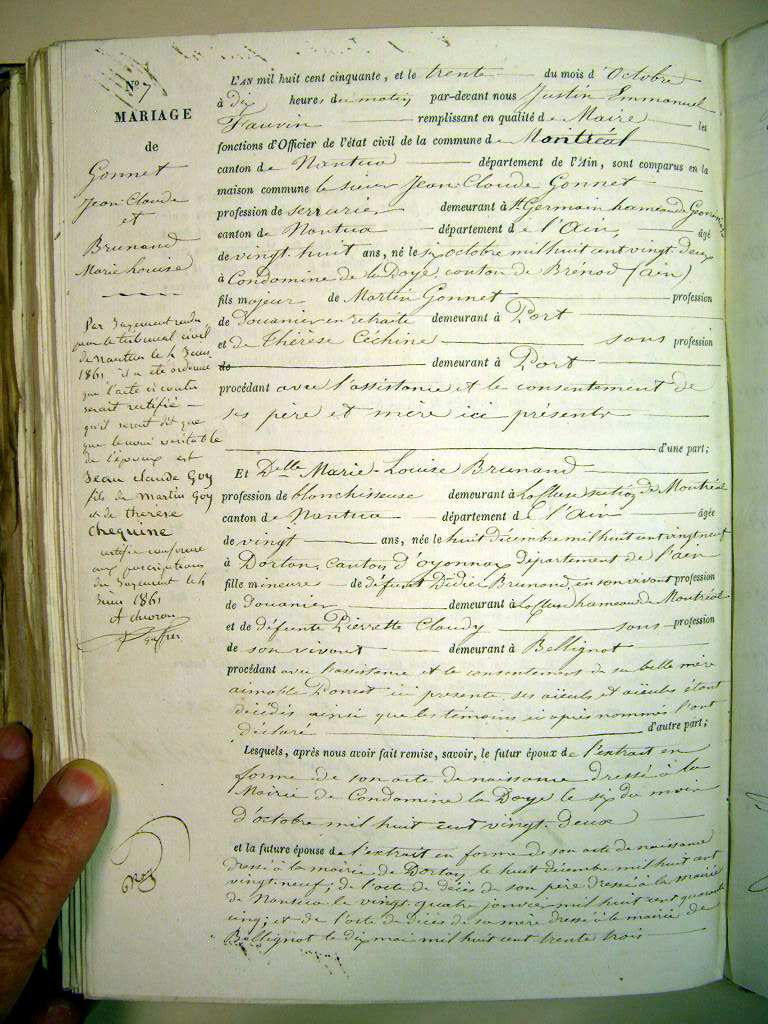 No 7
MARIAGE
de
Gonnet
Jean-Claude
et
Brunand
Marie Louise
Par Jugement rendu
par le tribunal civil
de Nantua le 4 Juin
1861 il a été ordonné
que l'acte ci contre
serait rectifié
qu'il serait dit que
que le nom véritable
de l'époux est
Jean Claude Goy
fils de Martin Goy
et de thérèse
Chequine
rectifié conformé
aux prescriptions
du Jugement du 4
Juin 1861
L'AN mil huit cent cinquante, et le trente du mois d'Octobre
à dix heures du matin par-devant nous Justin Emmanuel
Fauvin remplissant en qualité de Maire les
fonctions d'Officier de l'état civil de la commune de Montréal
canton de Nantua département de l'Ain, sont comparus en la
maison commune le sieur Jean-Claude Gonnet
profession de serrurier demeurant à St Germain hameau de
canton de Nantua département de l'Ain, âgé
de vingt-huit ans, né le six octobre mil huit cent vingt deux
à Condamine de la Doye, canton de Brénod (ain)
fils majeur de Martin Gonnet profession
de Douanier en retraite demeurant à Port
et de Thérèse Céchine sans profession
de demeurant à Port
procédant avec l'assistance et le consentement de
ses père et mère ici présents
d'une part;
Et Delle Marie-Louise Brunand
profession de blanchisseuse demeurant à la cluse section de Montréal
canton de Nantua département de l'Ain âgée
de vingt ans, née le huit décembre mil huit cent vingt neuf
à Dortan, Canton d'oyonnax département de l'ain
fille mineure de défunt Didier Brunand, en son vivant profession
de Douanier demeurant à la cluse hameau de Montréal
et de défunte Pierrette Claudy sans profession
de son vivant demeurant à Bellignat
procédant avec l'assistance et le consentement de sa belle mère
aimable Poncet ici présente, ses aïeuls et aïeules étant
décédés ainsi que les témoins ci après nommés l'ont
déclaré d'autre part;
Lesquels, après nous avoir fait remise, savoir, le futur époux de l'extrait en
forme de son acte de naissance dressé à la
Mairie de Condamine la Doye le six du mois
d'octobre mil huit cent vingt-deux
et la future épouse de l'extrait en forme de son acte de naissance
dressé à la mairie de Dortan le huit décembre mil huit cent
vingt-neuf; de l'acte de décès de son père dressé à la mairie
de Nantua le vingt quatre janvier mil huit cent quarante
cinq; et de l'acte de décès de sa mère dressé à la mairie de
Bellignat le dix mai mil huit cent trente trois